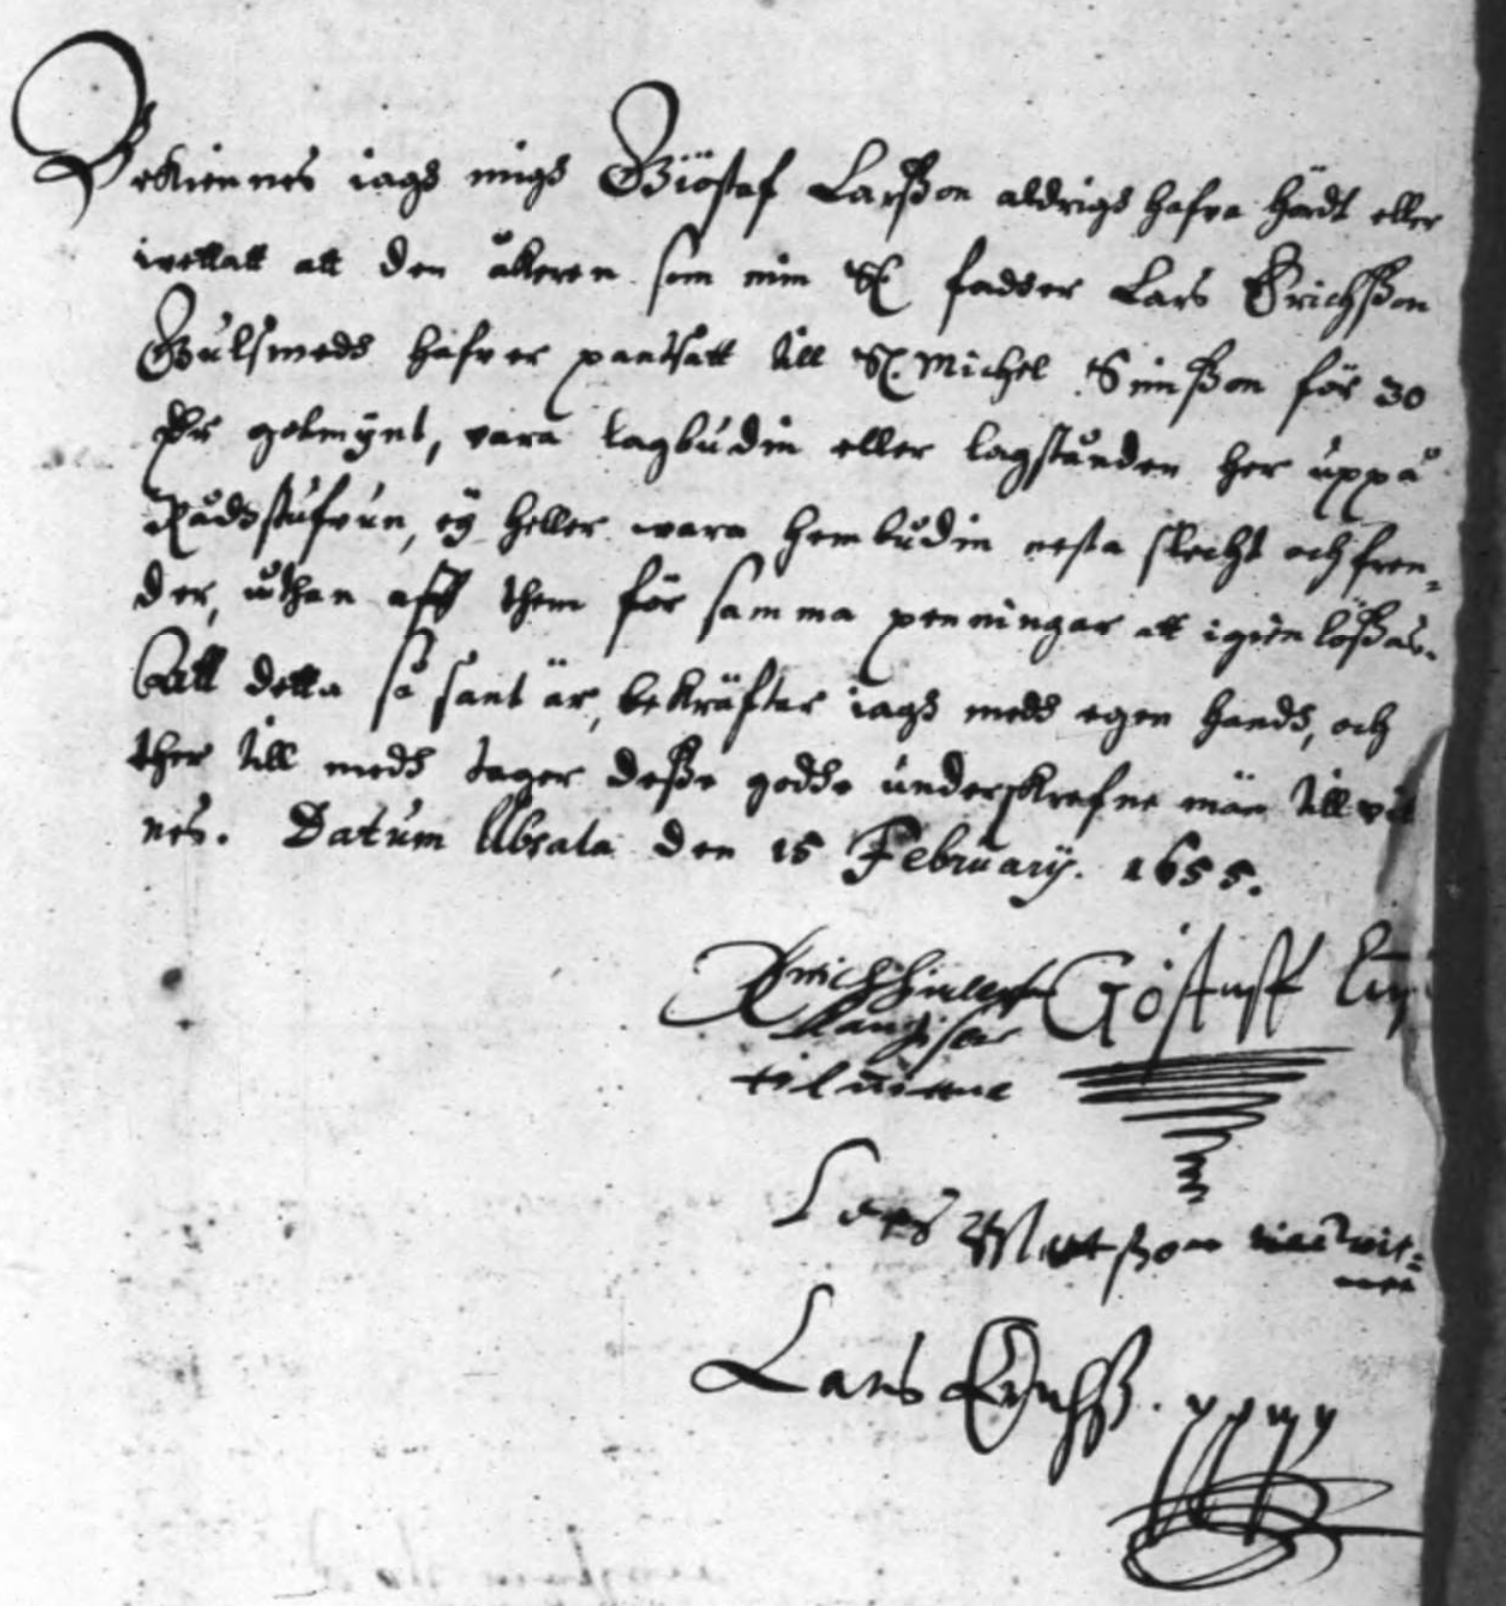 Bekiennes iagh migh Giöstaf Larßon aldrigh hafva hördt eller
wettatt att den åkeren som min S. fadder Lars Erichßon
Gulsmedh hafver pantsatt till S. Michel Simßon för 30
dlr gotmynt, vara lagbudin eller lagstånden her uppå
Rådhstufvun, ey heller wara hembudin nesta slecht och fren-
der, uthan aff them för samma penningar att igienlößas.
Att detta så sant är, bekräftar iagh medh egen handh, och
ther till medh tager deßa godhe underskrefne män till vit
nes. Datum Ubsala den 15 February. 1655.
Göstaff
til witne
Lars Matßon till wit:
nes
Lars Erichß.